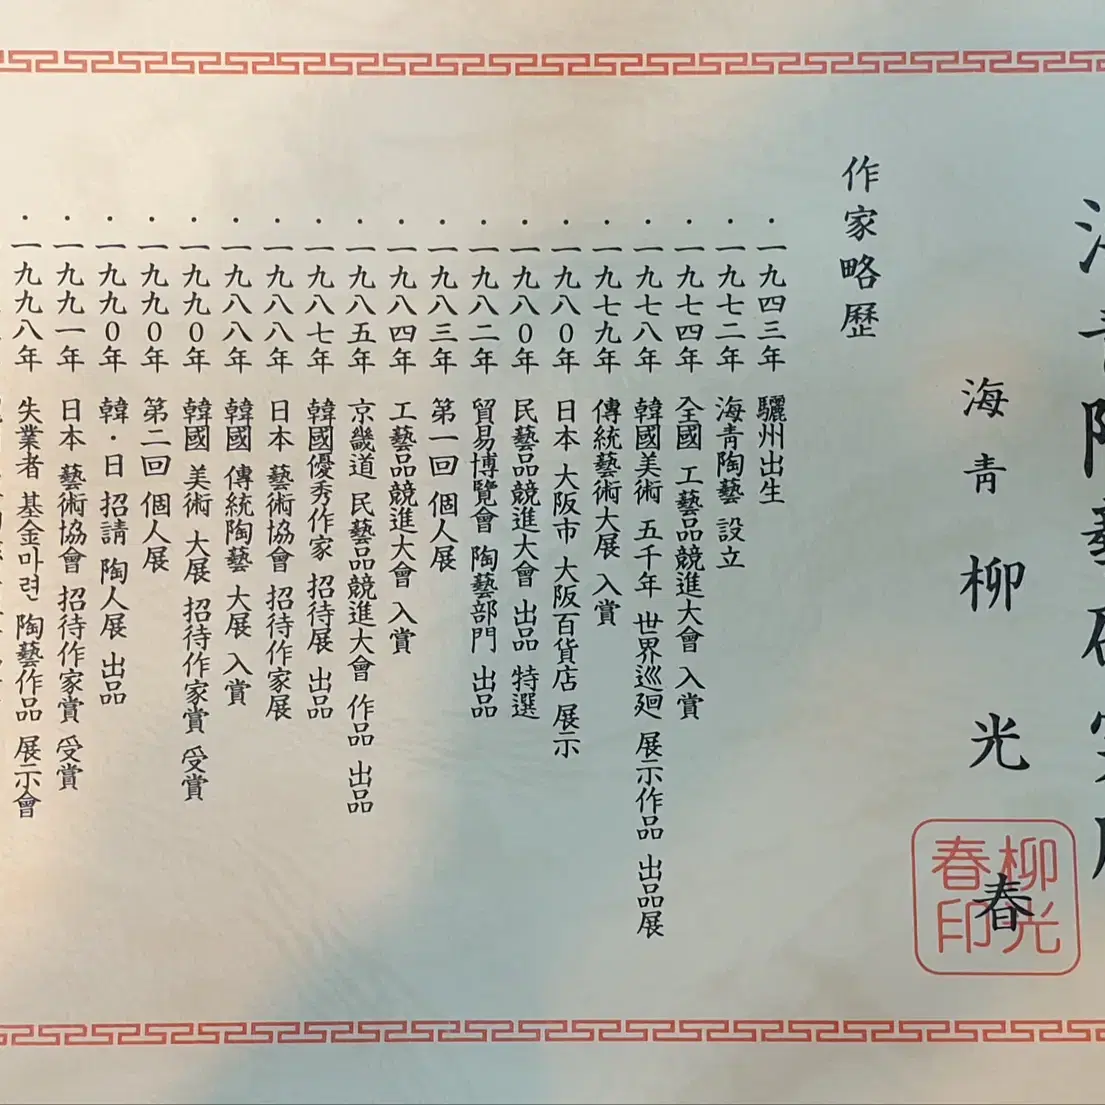 海青陶藝研究所
海青 柳光春
柳光春印
作家略歷
・一九四三年 驪州出生
・一九七二年 海靑陶藝 設立
・一九七四年 全國 工藝品競進大會 入賞
・一九七八年 韓國美術 五千年 世界巡廻 展示作品 出品展
・一九七九年 傳統藝術大展 入賞
・一九八0年 日本 大阪市 大阪百貨店 展示
・一九八0年 民藝品競進大會 出品 特選
・一九八二年 貿易博覽會 陶藝部門 出品
・一九八三年 第一回 個人展
・一九八四年 工藝品競進大會 入賞
・一九八五年 京畿道 民藝品競進大會 作品 出品
・一九八七年 韓國優秀作家 招待展 出品
・一九八八年 日本 藝術協會 招待作家展
・一九八八年 韓國 傳統陶藝 大展 入賞
・一九九0年 韓國 美術 大展 招待作家賞 受賞
・一九九0年 第二回 個人展
・一九九0年 韓・日 招請 陶人展 出品
・一九九一年 日本 藝術協會 招待作家賞 受賞
・一九九八年 失業者 基金마련 陶藝作品 展示會